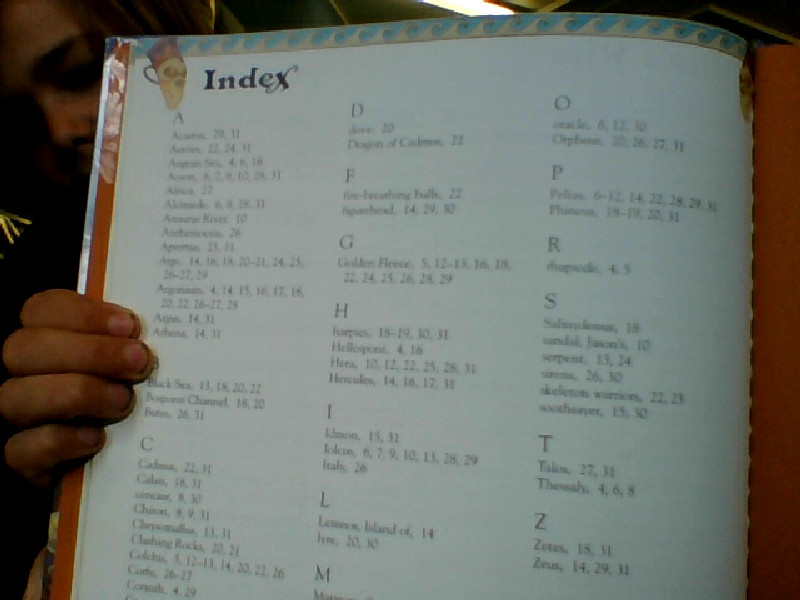 Index
A
Acastus, 29, 31
Aeetes, 22, 24, 31
Aegean Sea, 4, 6, 16
Aeson, 6, 7, 9, 10, 28, 31
Africa, 27
Alcimede, 6, 9, 28, 31
Anaurus River, 10
Anthemoessa, 26
Apsyrtus, 25, 31
Argo, 14, 16, 18, 20–21, 24, 25,
26–27, 29
Argonauts, 4, 14, 15, 16, 17, 18,
20, 22, 26–27, 28
Argus, 14, 31
Athena, 14, 31
B
Black Sea, 13, 18, 20, 22
Bosporus Channel, 18, 20
Butes, 26, 31
C
Cadmus, 22, 31
Calais, 18, 31
centaur, 8, 30
Chiron, 8, 9, 31
Chrysomallus, 13, 31
Clashing Rocks, 20, 21
Colchis, 5, 12–13, 14, 20, 22, 26
Corfu, 26–27
Corinth, 4, 29
D
dove, 20
Dragon of Cadmus, 22
F
fire-breathing bulls, 22
figurehead, 14, 29, 30
G
Golden Fleece, 5, 12–13, 16, 18,
22, 24, 25, 26, 28, 29
H
harpies, 18–19, 30, 31
Hellespont, 4, 16
Hera, 10, 12, 22, 25, 28, 31
Hercules, 14, 16, 17, 31
I
Idmon, 15, 31
Iolcus, 6, 7, 9, 10, 13, 28, 29
Italy, 26
L
Lemnos, Island of, 14
lyre, 20, 30
M
O
oracle, 6, 12, 30
Orpheus, 20, 26, 27, 31
P
Pelias, 6–12, 14, 22, 28, 29, 31
Phineus, 18–19, 20, 31
R
rhapsode, 4, 5
S
Salmydessus, 18
sandal, Jason's, 10
serpent, 13, 24
sirens, 26, 30
skeleton warriors, 22, 23
soothsayer, 15, 30
T
Talos, 27, 31
Thessaly, 4, 6, 8
Z
Zetes, 18, 31
Zeus, 14, 29, 31